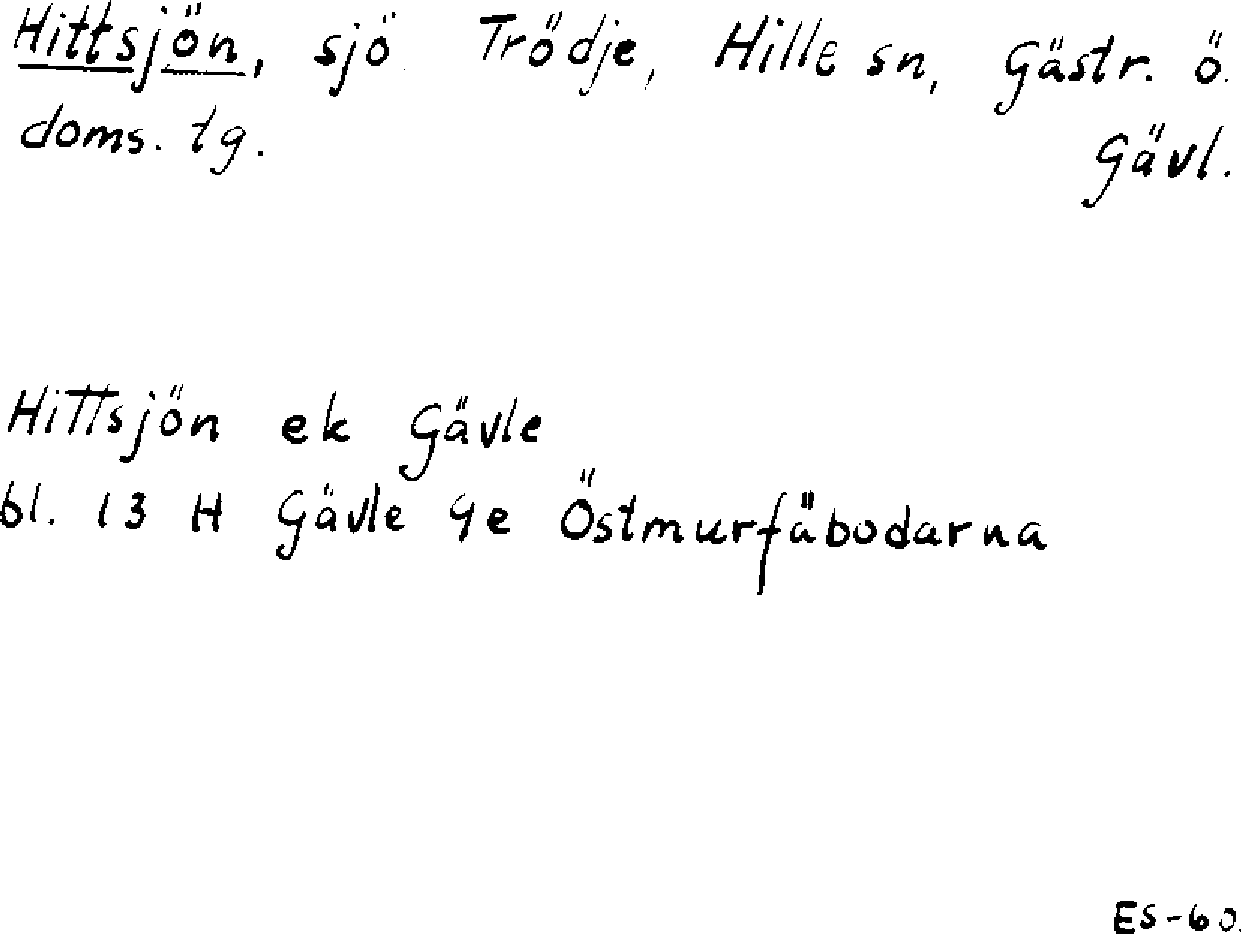 Hittsjön, sjö Trödje, Hille sn, Gästr. ö.
doms. tg. Gävl.
Hittsjön ek Gävle
bl. 13 H Gävle 9e Östmurfäbodarna
ES-60.